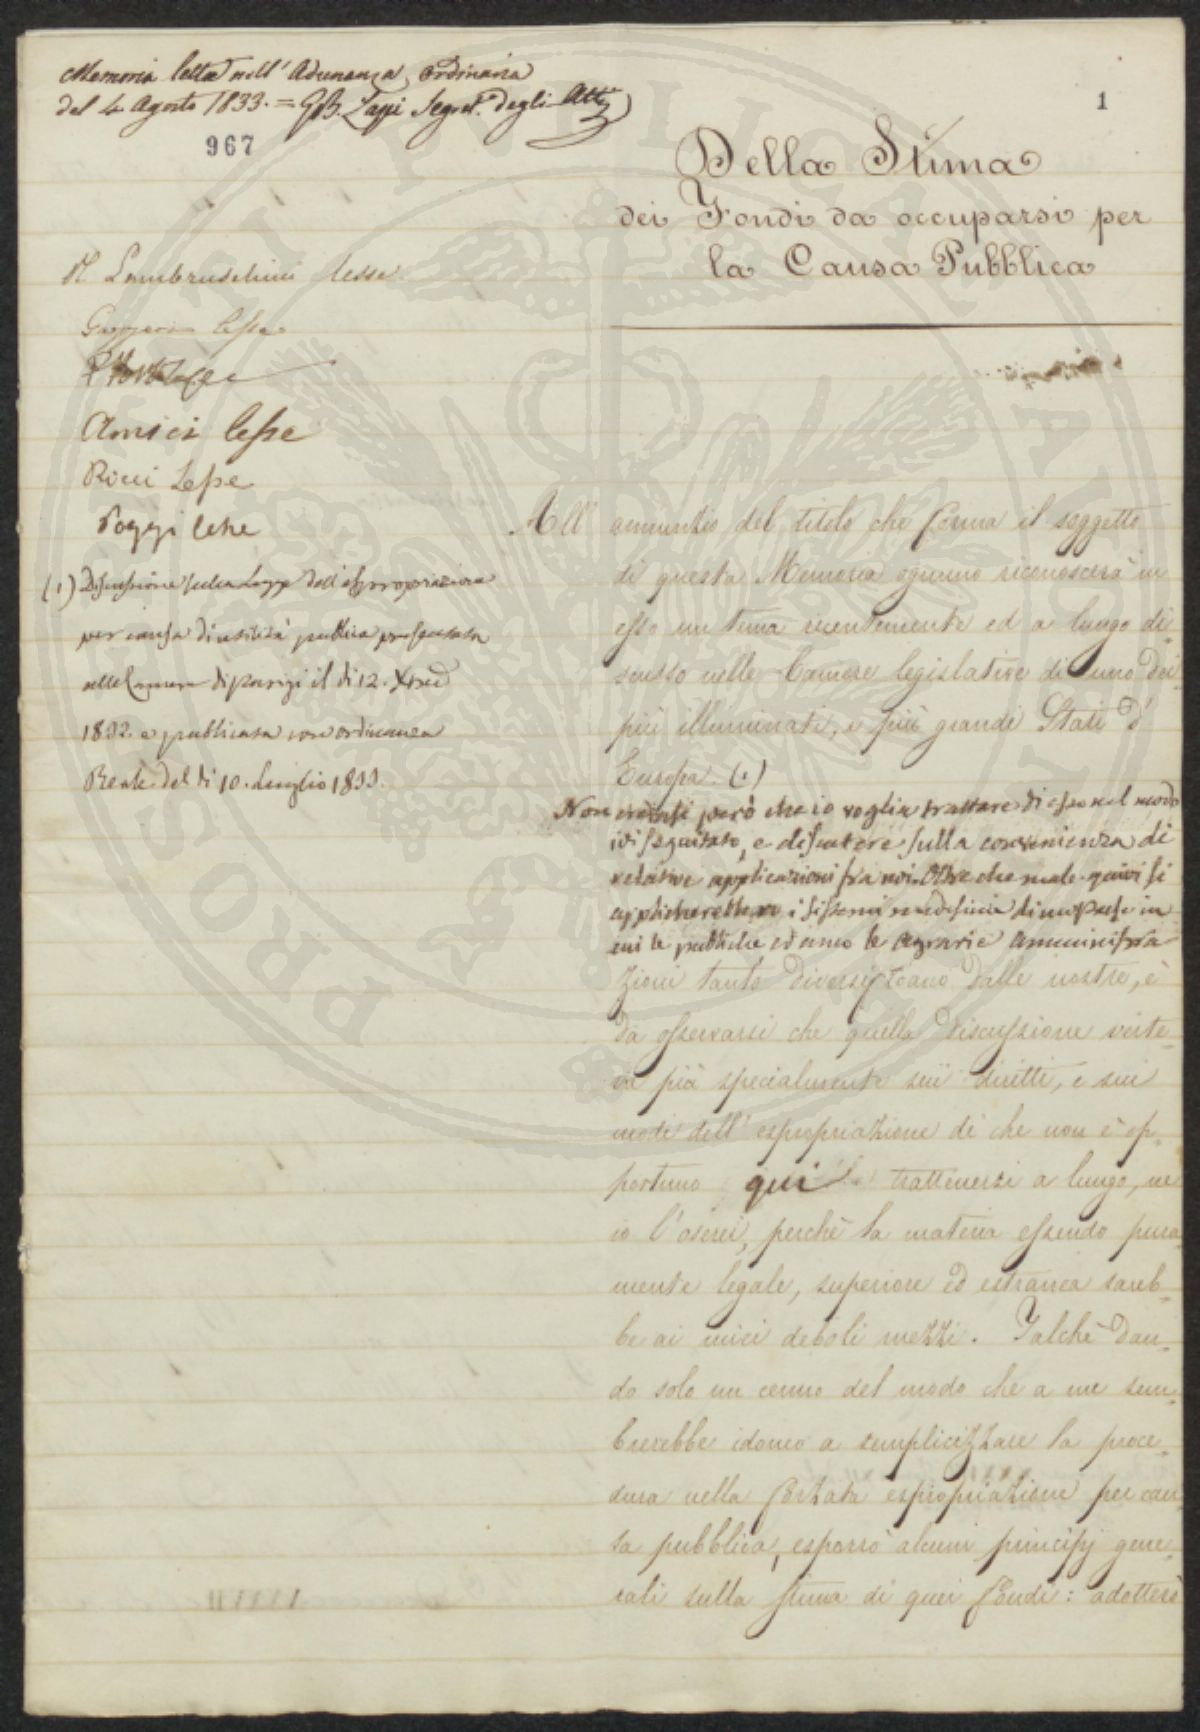 Memoria letta nell'Adunanza ordinaria
del 4 Agosto 1833. = GB. Zappi Segret.° degli Atti
967
1
Della Stima
dei Fondi da occuparsi per
la Causa Pubblica
R Lambruschini lesse
lesse
Amici lesse
Ricci Lesse
Poggi lesse
(1) Discussione sulla Legge dell'espropriazione
per causa di utilità publica presentata
alla Camera di parigi il di 12. Xbre
1832 e publicata con ordinanza
Reale del di 10. Luglio 1833.
All' annuntio del titolo che forma il soggetto
di questa Memoria ognuno riconoscerà in
esso un tema recentemente ed a lungo di-
scusso nelle Camere legislative di uno dei
più illuminati, e più grandi Stati d'
Europa. (1)
Non credasi però che io voglia trattare di esso nel modo
ivi seguitato, e discutere sulla convenienza di
relative applicazioni fra noi. Oltre che male quivi si
applicherebbero i sistemi di un paese in
cui le publiche ed anco le agrarie amministra
zioni tanto diversificano dalle nostre, è
da osservarsi che quella discussione verte-
va più specialmente sui diritti, e sui
modi dell'espropriazione di che non è op-
portuno qui trattenersi a lungo, ne
io l'oserei, perchè la materia essendo pura-
mente legale, superiore ed estranea sareb-
be ai miei deboli mezzi. Talchè dan-
do solo un cenno del modo che a me sem-
brerebbe idoneo a semplicizzare la proce-
dura nella forzata espropriazione per cau-
sa pubblica, esporrò alcuni principj gene-
rali sulla stima di quei fondi: adotterò